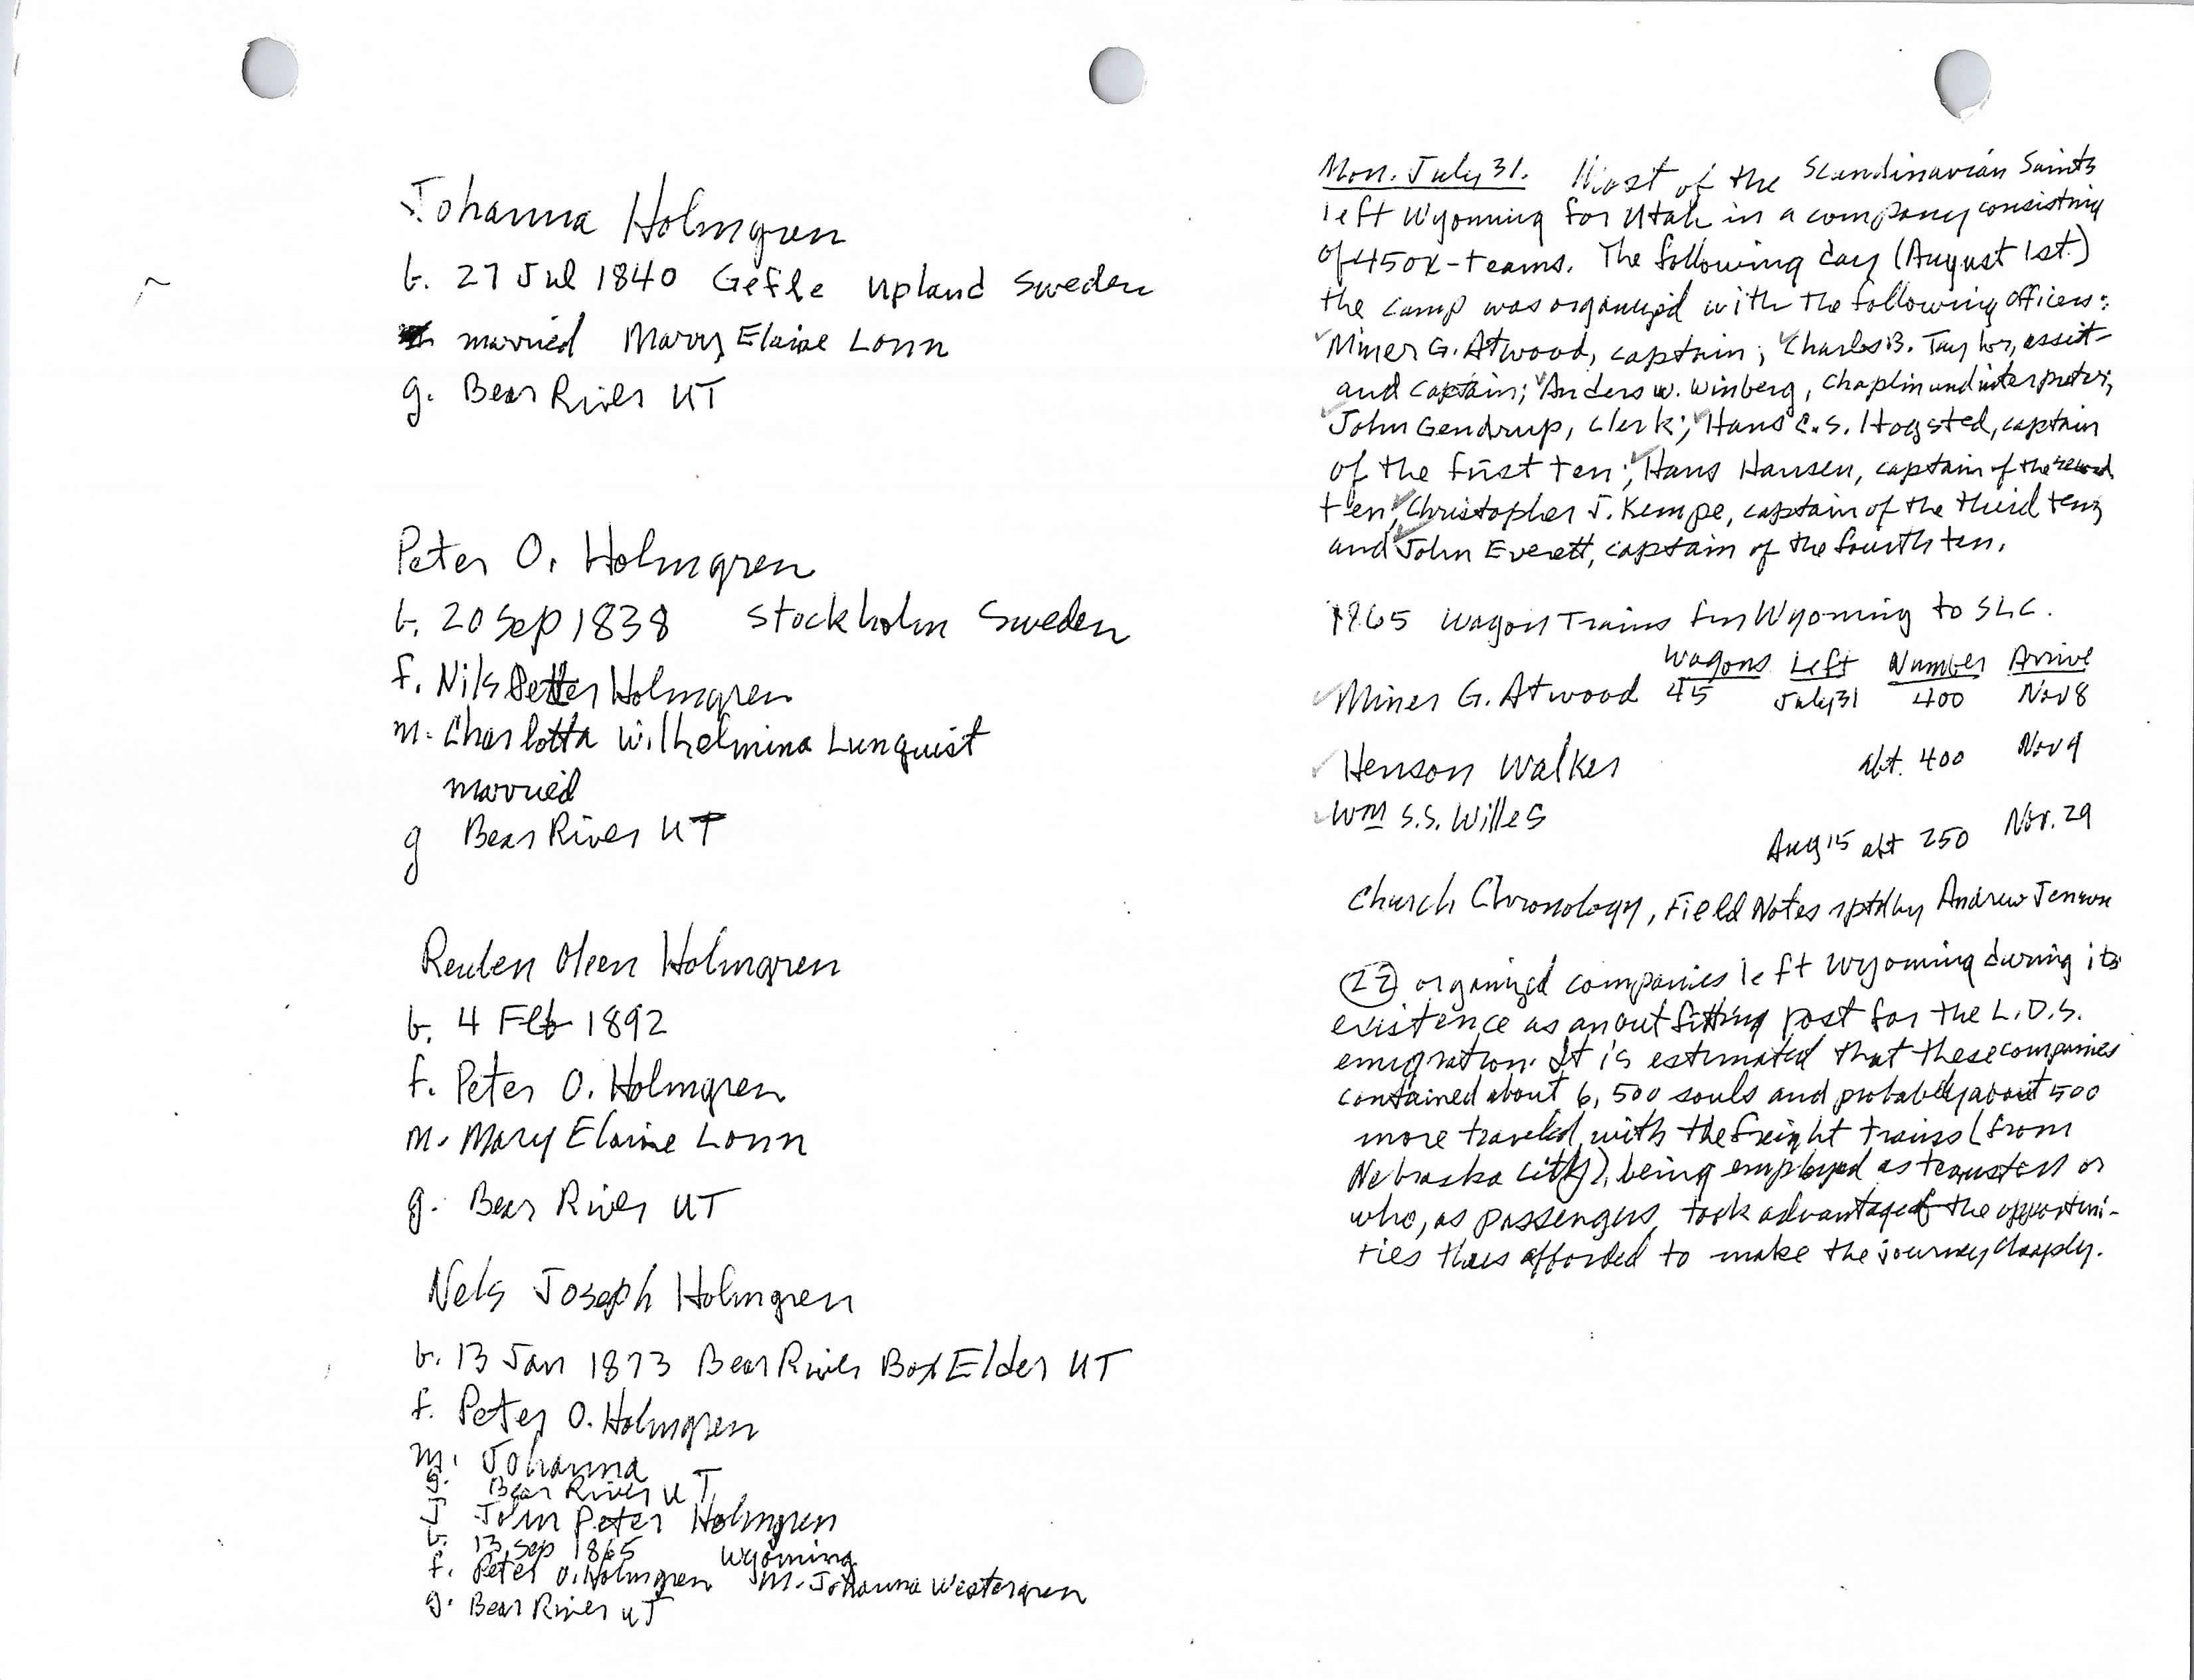 Johanna Holmgren
b. 27 Jul 1840 Gefle Upland Sweden
married Mary Elaine Lonn
g. Bear River UT
Peter O. Holmgren
b. 20 Sep 1838 Stockholm Sweden
f. Nils Petter Holmgren
m. Charlotta Wilhelmina Lunquist
married
g Bear River UT
Reuben Oleen Holmgren
b. 4 Feb 1892
f. Peter O. Holmgren
m. Mary Elaine Lonn
g. Bear River UT
Nels Joseph Holmgren
b. 13 Jan 1873 Bear River Box Elder UT
f. Peter O. Holmgren
m. Johanna
g. Bear River UT
John Peter Holmgren
b. 13 Sep 1865 Wyoming
f. Peter O. Holmgren m. Johanna Westergren
g. Bear River UT
Mon. July 31. Most of the Scandinavian Saints
left Wyoming for Utah in a company consisting
of 45 ox-teams. The following day (August 1st.)
the camp was organized with the following officers:
Miner G. Atwood, captain; Charles B. Taylor, assist-
and captain; Anders W. Winberg, Chaplin and interpreter;
John Gendrup, clerk; Hans C. S. Hogsted, captain
of the first ten; Hans Hansen, captain of the second
ten; Christopher J. Kempe, captain of the third ten;
and John Everett, captain of the fourth ten.
1865 Wagon Trains fm Wyoming to SLC.
Wagons Left Number Arrive
Miner G. Atwood 45 July 31 400 Nov 8
Henson Walker abt. 400 Nov 9
Wm S.S. Willes
Aug 15 abt 250 Nov. 29
Church Chronology, Field Notes rptd by Andrew Jenson
22 organized companies left Wyoming during its
existence as an outfitting post for the L.D.S.
emigration. It is estimated that these companies
contained about 6,500 souls and probably about 500
more traveled, with the freight trains (from
Nebraska City), being employed as teamsters or
who, as passengers, took advantage of the opportuni-
ties thus afforded to make the journey cheaply.